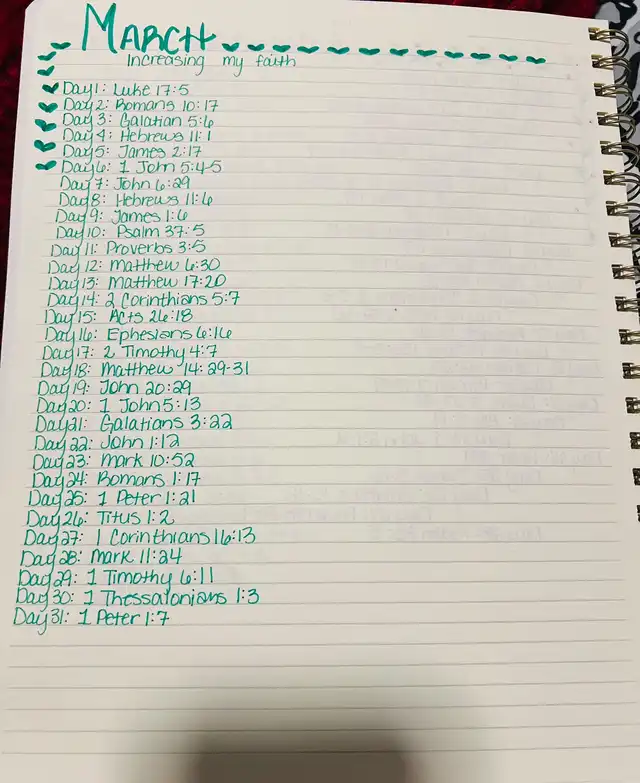 MARCH
Increasing my faith
Day 1: Luke 17:5
Day 2: Romans 10:17
Day 3: Galatian 5:6
Day 4: Hebrews 11:1
Day 5: James 2:17
Day 6: 1 John 5:4-5
Day 7: John 6:29
Day 8: Hebrews 11:6
Day 9: James 1:6
Day 10: Psalm 37:5
Day 11: Proverbs 3:5
Day 12: Matthew 6:30
Day 13: Matthew 17:20
Day 14: 2 Corinthians 5:7
Day 15: Acts 26:18
Day 16: Ephesians 6:16
Day 17: 2 Timothy 4:7
Day 18: Matthew 14:29-31
Day 19: John 20:29
Day 20: 1 John 5:13
Day 21: Galatians 3:22
Day 22: John 1:12
Day 23: Mark 10:52
Day 24: Romans 1:17
Day 25: 1 Peter 1:21
Day 26: Titus 1:2
Day 27: 1 Corinthians 16:13
Day 28: Mark 11:24
Day 29: 1 Timothy 6:11
Day 30: 1 Thessalonians 1:3
Day 31: 1 Peter 1:7